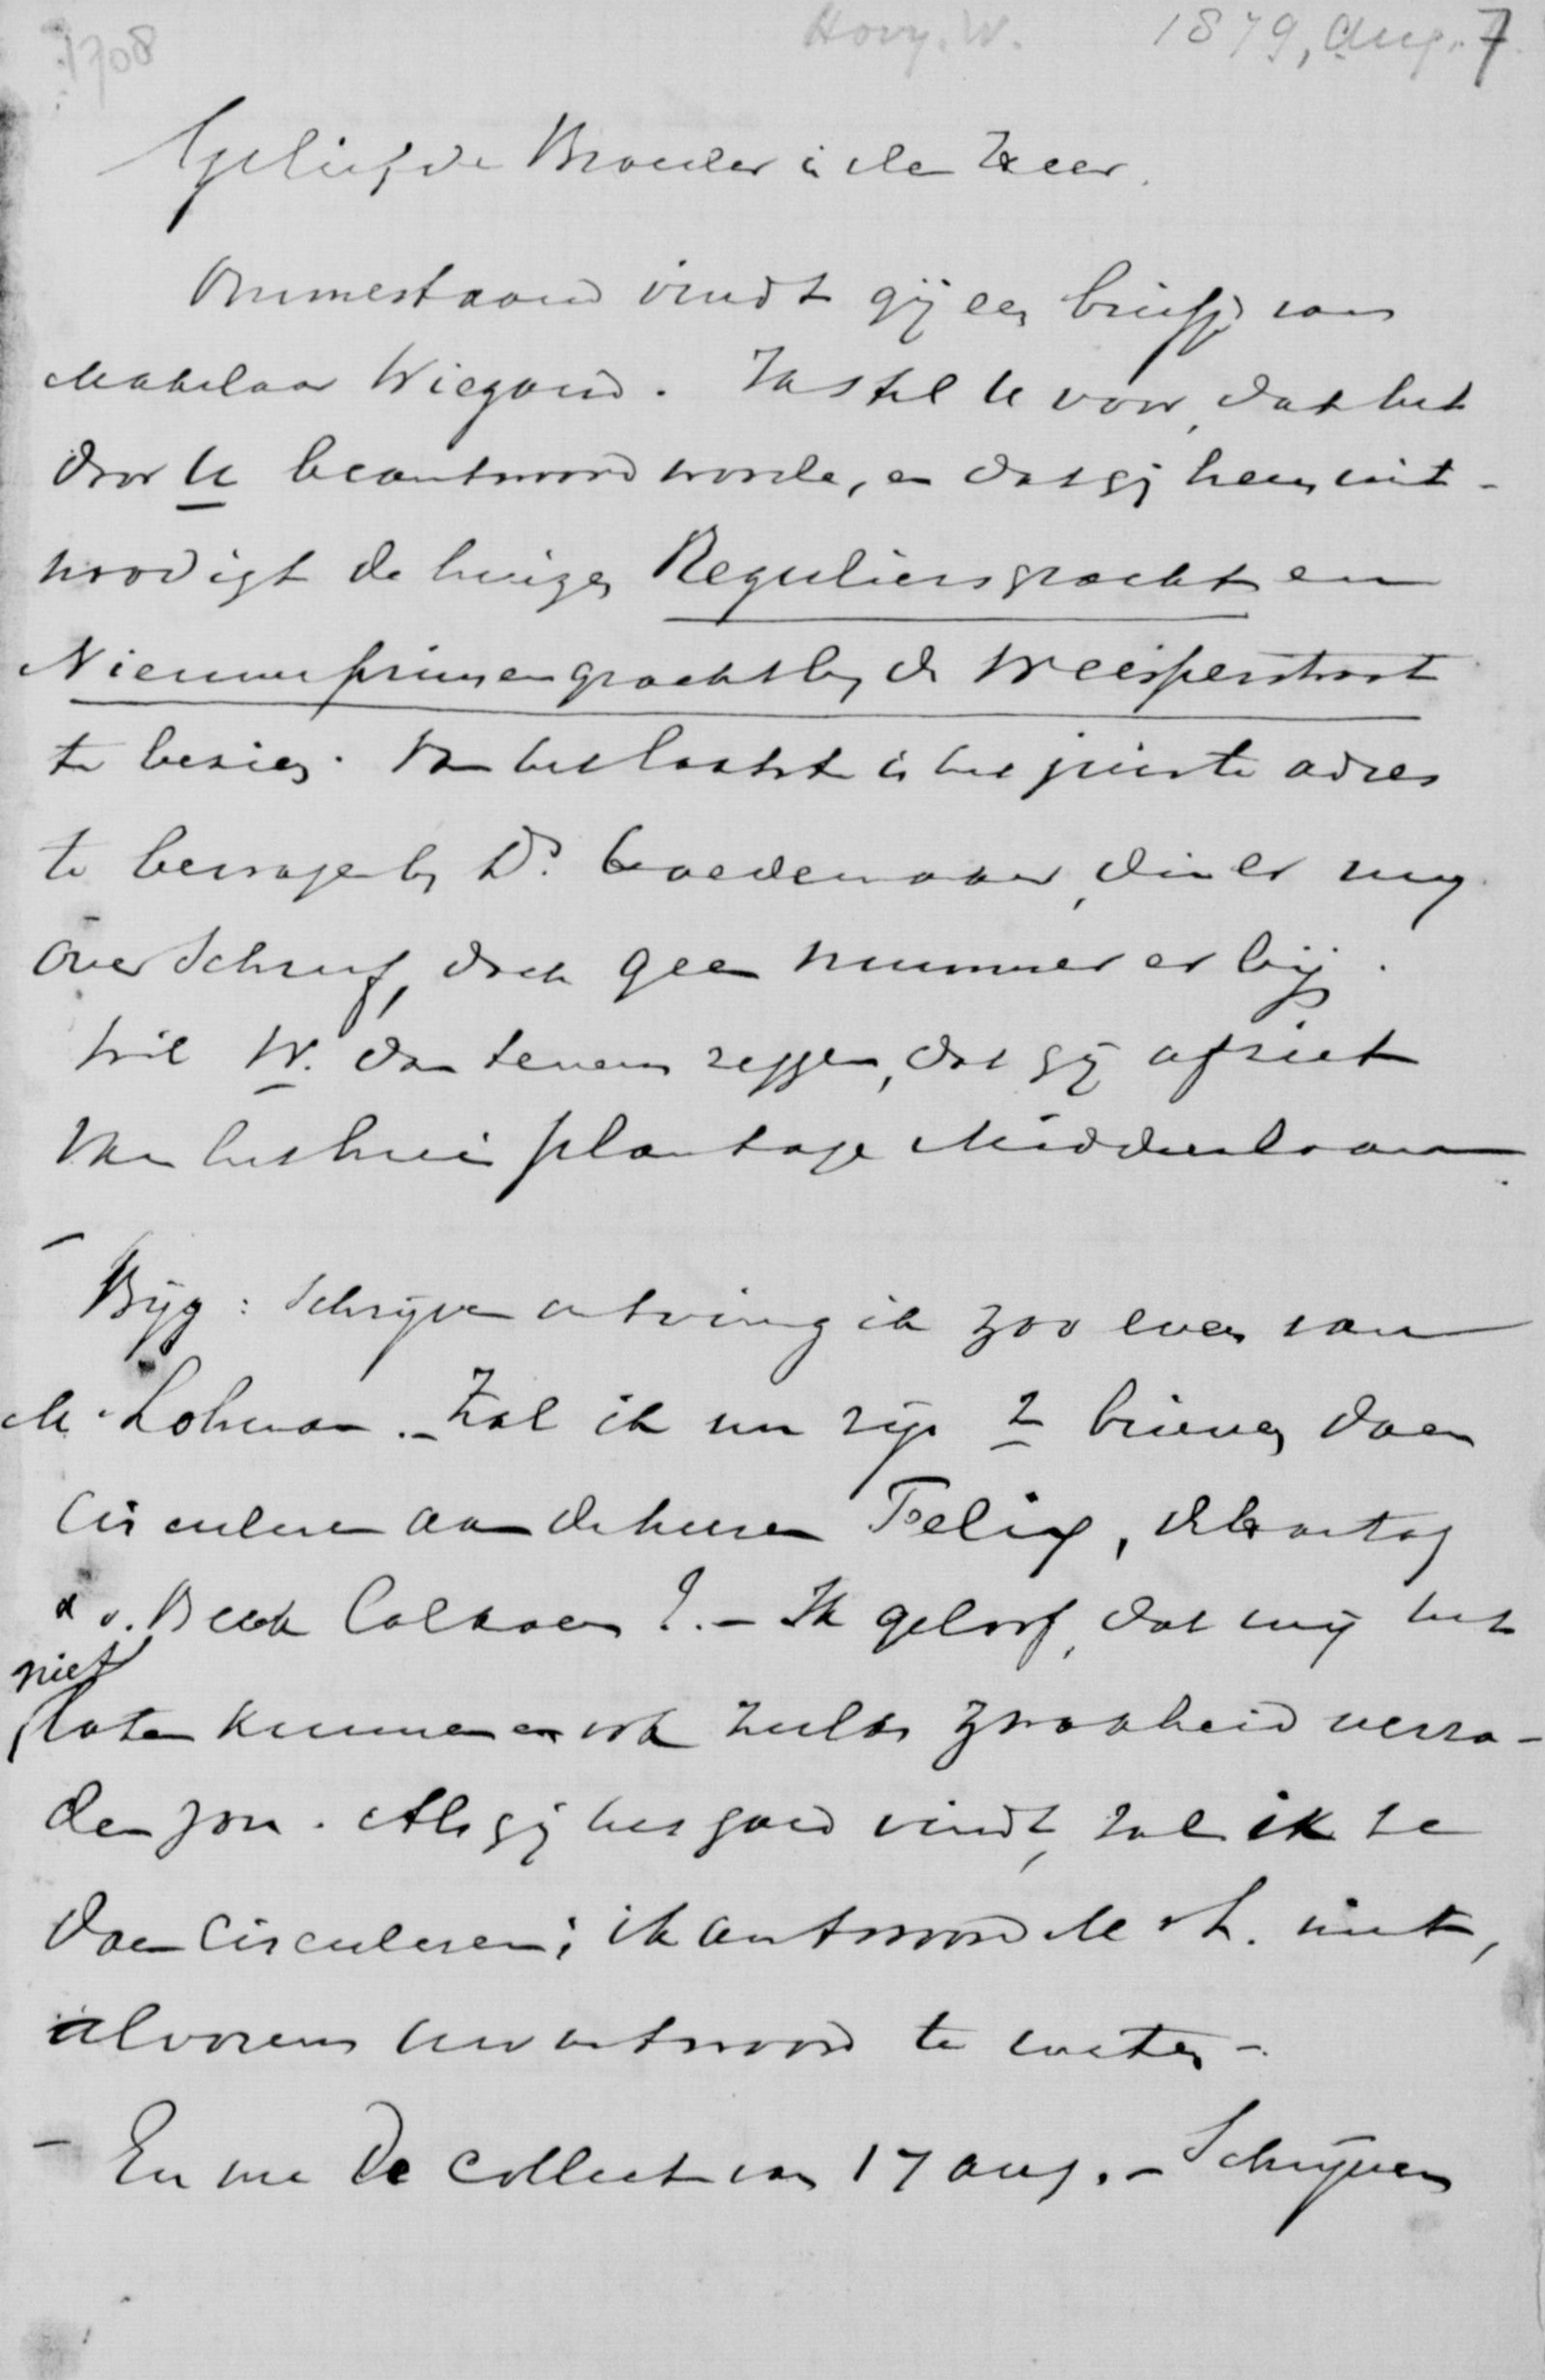 1708 Hovy. W. 1879, Aug. 7
Geliefde Broeder in den Heer.
Ommestaand vindt gij een briefje van
Makelaar Wiegand. Ik stel U voor, dat het
door U beantwoord worde, en dat gij hem uit-
noodigt de huizen Reguliersgracht en
Nieuwe prinsengracht bij de Weesperstraat
te bezien. Van het laatste is het juiste adres
te bevragen bij Ds. Goedemaar, die er mij
over schreef, doch geen nummer er bij.
Wil W. dan tevens zeggen, dat gij afziet
van het huis plantage Middenlaan
- Bijg: schrijven ontving ik zoo even van
M. Lohman. - Zal ik nu zijn 2 brieven doen
circuleren aan de heeren Felix, 
& v. Beeck Calkoen?. - Ik geloof, dat wij het
niet
laten kunnen en ook zulks zwakheid verra-
den zou. Als gij het goed vindt, zal ik ze
doen circuleren; ik antwoord de L. niet,
alvorens uw antwoord te weten -
- En nu De collect van 17 aug. - Schrijven